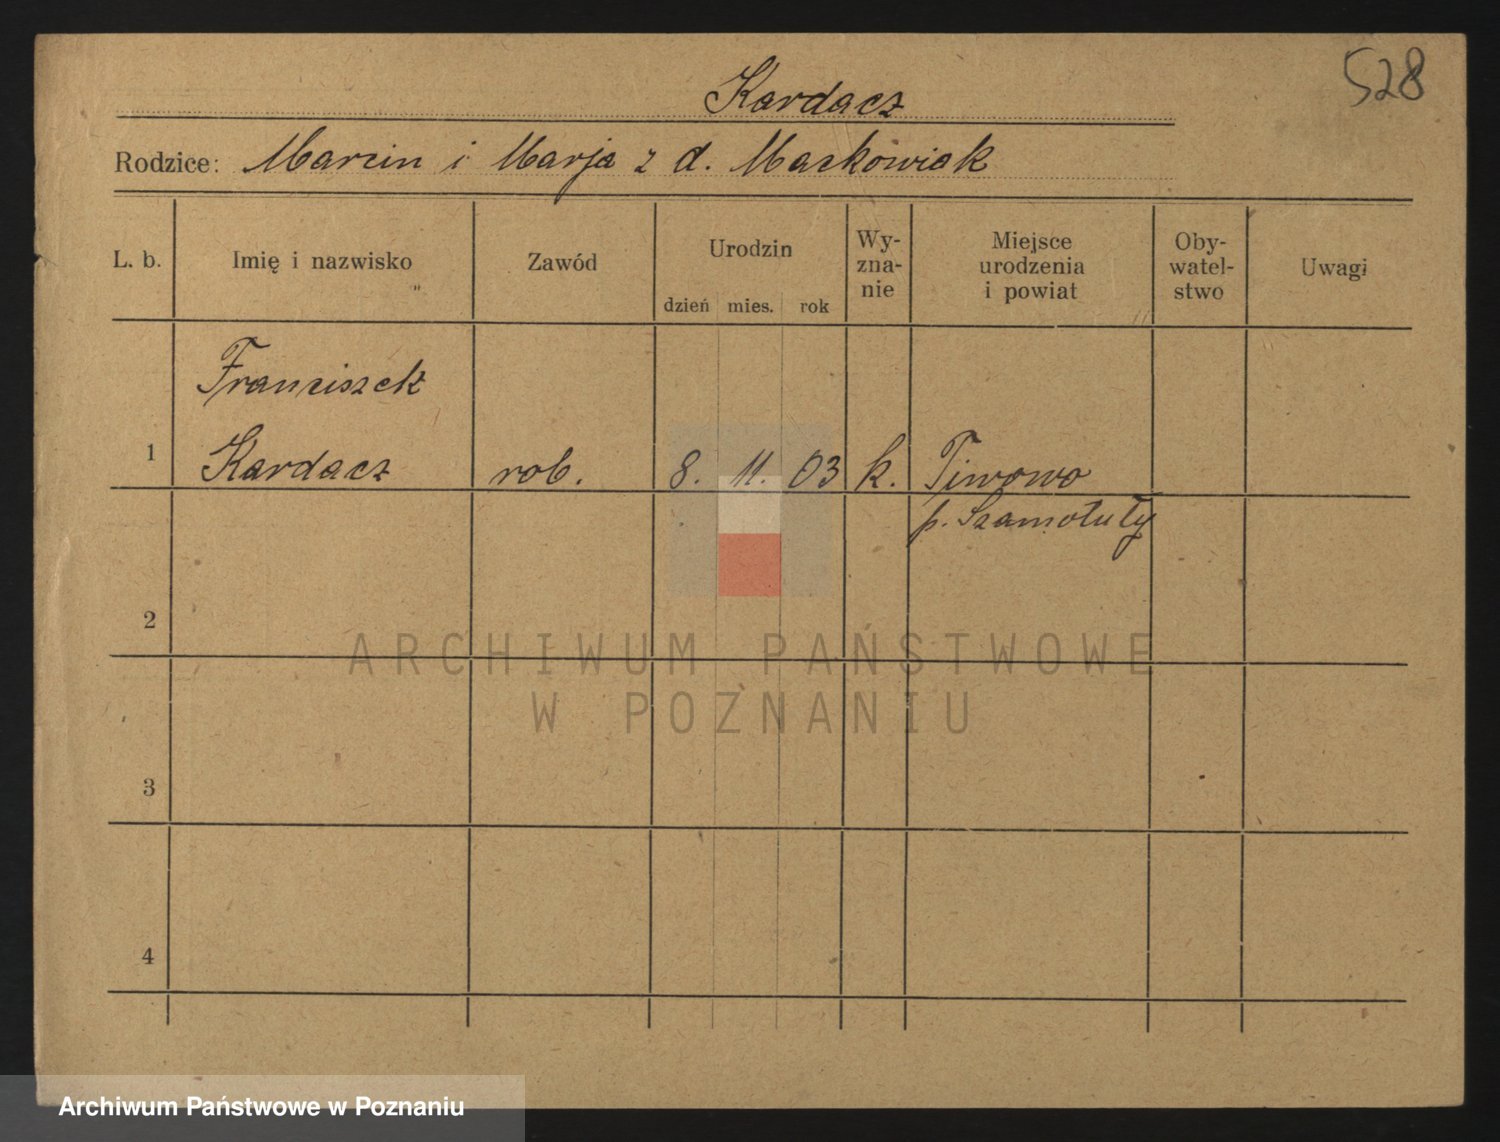 528
Kardacz
Rodzice: Marcin i Marja z d. Maćkowiak
L. b. Imię i nazwisko Zawód Urodzin dzień mies. rok Wy-zna-nie Miejsce urodzenia i powiat Oby-watel-stwo Uwagi
Franciszek
1 Kardacz rob. 8. 11. 03 k. Piwowo
p. Szamotuły
2
3
4
ARCHIWUM PAŃSTWOWE
W POZNANIU
Archiwum Państwowe w Poznaniu